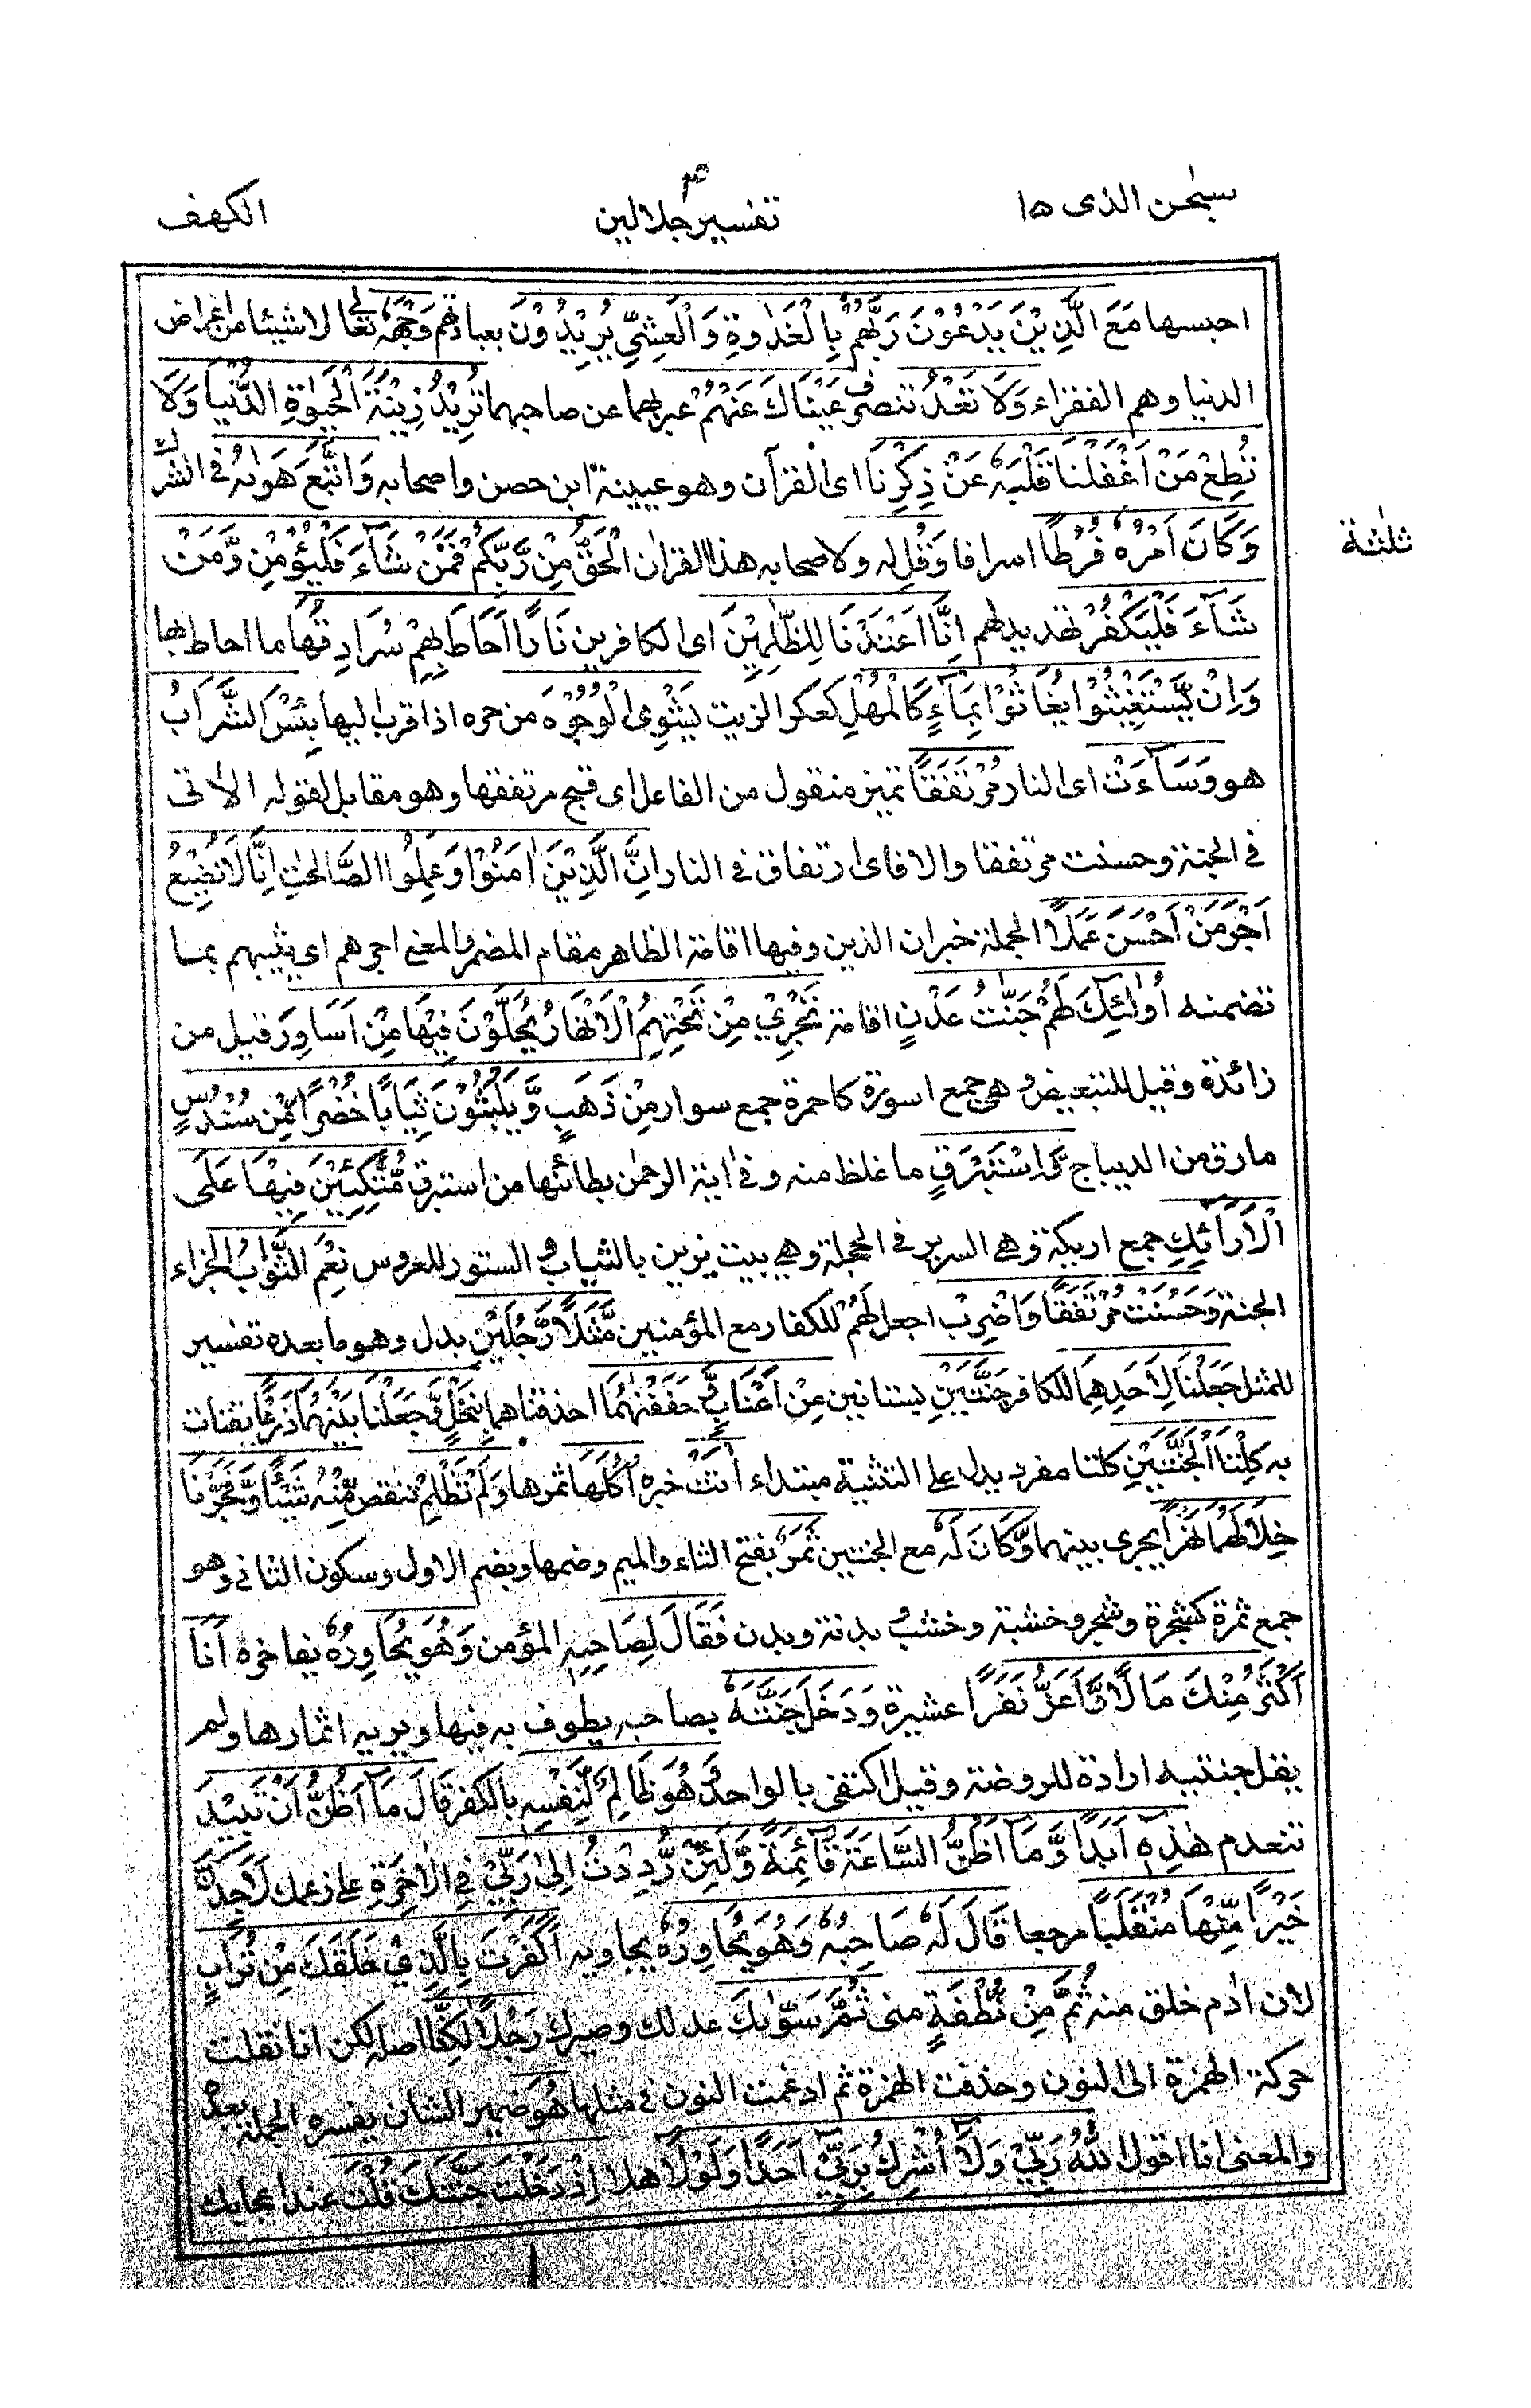 سبحٰن الذی ١٥
٣
تفسير جلالين
الكهف
احبسها مَعَ الَّذِيْنَ يَدْعُوْنَ رَبَّهُمْ بِالْغَدٰوةِ وَالْعَشِيِّ يُرِيْدُوْنَ بعبادتهم وَجْهَهٗ تعالىٰ لا شيئا من اعراض
الدنيا وهم الفقراء وَلَا تَعْدُ تنصرف عَيْنَاكَ عَنْهُمْ عبر بهما عن صاحبهما تُرِيْدُ زِيْنَةَ الْحَيٰوةِ الدُّنْيَا وَلَا
تُطِعْ مَنْ اَغْفَلْنَا قَلْبَهٗ عَنْ ذِكْرِنَا اى القرآن وهو عيينة ابن حصن واصحابه وَاتَّبَعَ هَوٰىهُ فى الشرك
وَكَانَ اَمْرُهٗ فُرُطًا اسرافا وَقُلِ له ولاصحابه هذا القراٰن الْحَقُّ مِنْ رَّبِّكُمْ فَمَنْ شَآءَ فَلْيُؤْمِنْ وَّمَنْ
ثلٰثة
شَآءَ فَلْيَكْفُرْ تهديد لهم اِنَّا اَعْتَدْنَا لِلظّٰلِمِيْنَ اى الكافرين نَارًا اَحَاطَ بِهِمْ سُرَادِقُهَا ما احاط بها
وَاِنْ يَّسْتَغِيْثُوْا يُغَاثُوْا بِمَآءٍ كَالْمُهْلِ كعكر الزيت يَشْوِى الْوُجُوْهَ من حره اذا قرب اليها بِئْسَ الشَّرَابُ
هو وَسَآءَتْ اى النار مُرْتَفَقًا تميز منقول من الفاعل اى قبح مرتفقها وهو مقابل لقوله الاٰتى
فى الجنة وحسنت مرتفقا والا فاى ارتفاق فى النار اِنَّ الَّذِيْنَ اٰمَنُوْا وَعَمِلُوا الصّٰلِحٰتِ اِنَّا لَا نُضِيْعُ
اَجْرَ مَنْ اَحْسَنَ عَمَلًا الجملة خبر ان الذين وفيها اقامة الظاهر مقام المضمر والمعنى اجرهم اى يثيبهم بما
تضمنه اُولٰٓئِكَ لَهُمْ جَنّٰتُ عَدْنٍ اقامة تَجْرِيْ مِنْ تَحْتِهِمُ الْاَنْهَارُ يُحَلَّوْنَ فِيْهَا مِنْ اَسَاوِرَ قيل من
زائدة وقيل للتبعيض وهى جمع اسورة كاحمرة جمع سوار مِنْ ذَهَبٍ وَّيَلْبَسُوْنَ ثِيَابًا خُضْرًا مِّنْ سُنْدُسٍ
مارق من الديباج وَاِسْتَبْرَقٍ ما غلظ منه وفى اٰية الرحمٰن بطائنها من استبرق مُّتَّكِـِٕيْنَ فِيْهَا عَلَى
الْاَرَآئِكِ جمع اريكة وهى السرير فى الحجلة وهى بيت يزين بالثياب والستور للعروس نِعْمَ الثَّوَابُ الجزاء
الجنة وَحَسُنَتْ مُرْتَفَقًا وَاضْرِبْ اجعل لَهُمْ للكفار مع المؤمنين مَّثَلًا رَّجُلَيْنِ بدل وهو وما بعده تفسير
للمثل جَعَلْنَا لِاَحَدِهِمَا للكافر جَنَّتَيْنِ بستانين مِنْ اَعْنَابٍ وَّحَفَفْنٰهُمَا احدقناهما بِنَخْلٍ وَّجَعَلْنَا بَيْنَهُمَا زَرْعًا يقتات
به كِلْتَا الْجَنَّتَيْنِ كلتا مفرد يدل على التثنية مبتداء اٰتَتْ خبره اُكُلَهَا ثمرها وَلَمْ تَظْلِمْ تنقص مِّنْهُ شَيْئًا وَّفَجَّرْنَا
خِلٰلَهُمَا نَهَرًا يجرى بينهما وَّكَانَ لَهٗ مع الجنتين ثَمَرٌ بفتح الثاء والميم وضمها وبضم الاول وسكون الثانى وهو
جمع ثمرة كشجرة وشجر وخشبة وخشب وبدنة وبدن فَقَالَ لِصَاحِبِهٖ المؤمن وَهُوَ يُحَاوِرُهٗ يفاخره اَنَا
اَكْثَرُ مِنْكَ مَالًا وَّاَعَزُّ نَفَرًا عشيرة وَدَخَلَ جَنَّتَهٗ بصاحبه يطوف به فيها ويريه اثمارها ولم
يقل جنتيه ارادة للروضة وقيل اكتفى بالواحد وَهُوَ ظَالِمٌ لِّنَفْسِهٖ بالكفر قَالَ مَآ اَظُنُّ اَنْ تَبِيْدَ
تنعدم هٰذِهٖٓ اَبَدًا وَّمَآ اَظُنُّ السَّاعَةَ قَآئِمَةً وَّلَئِنْ رُّدِدْتُّ اِلٰى رَبِّيْ فى الاٰخرة على زعمك لَاَجِدَنَّ
خَيْرًا مِّنْهَا مُنْقَلَبًا مرجعا قَالَ لَهٗ صَاحِبُهٗ وَهُوَ يُحَاوِرُهٗٓ يجاوبه اَكَفَرْتَ بِالَّذِيْ خَلَقَكَ مِنْ تُرَابٍ
لان اٰدم خلق منه ثُمَّ مِنْ نُّطْفَةٍ منى ثُمَّ سَوّٰىكَ عدلك وصيرك رَجُلًا لٰكِنَّا اصله لكن انا نقلت
حركة الهمزة الى النون وحذفت الهمزة ثم ادغمت النون فى مثلها هُوَ ضمير الشان يفسره الجملة بعده
والمعنى انا اقول اللهُ رَبِّيْ وَلَآ اُشْرِكُ بِرَبِّيْٓ اَحَدًا وَلَوْلَآ هلا اِذْ دَخَلْتَ جَنَّتَكَ قُلْتَ عند اعجابك